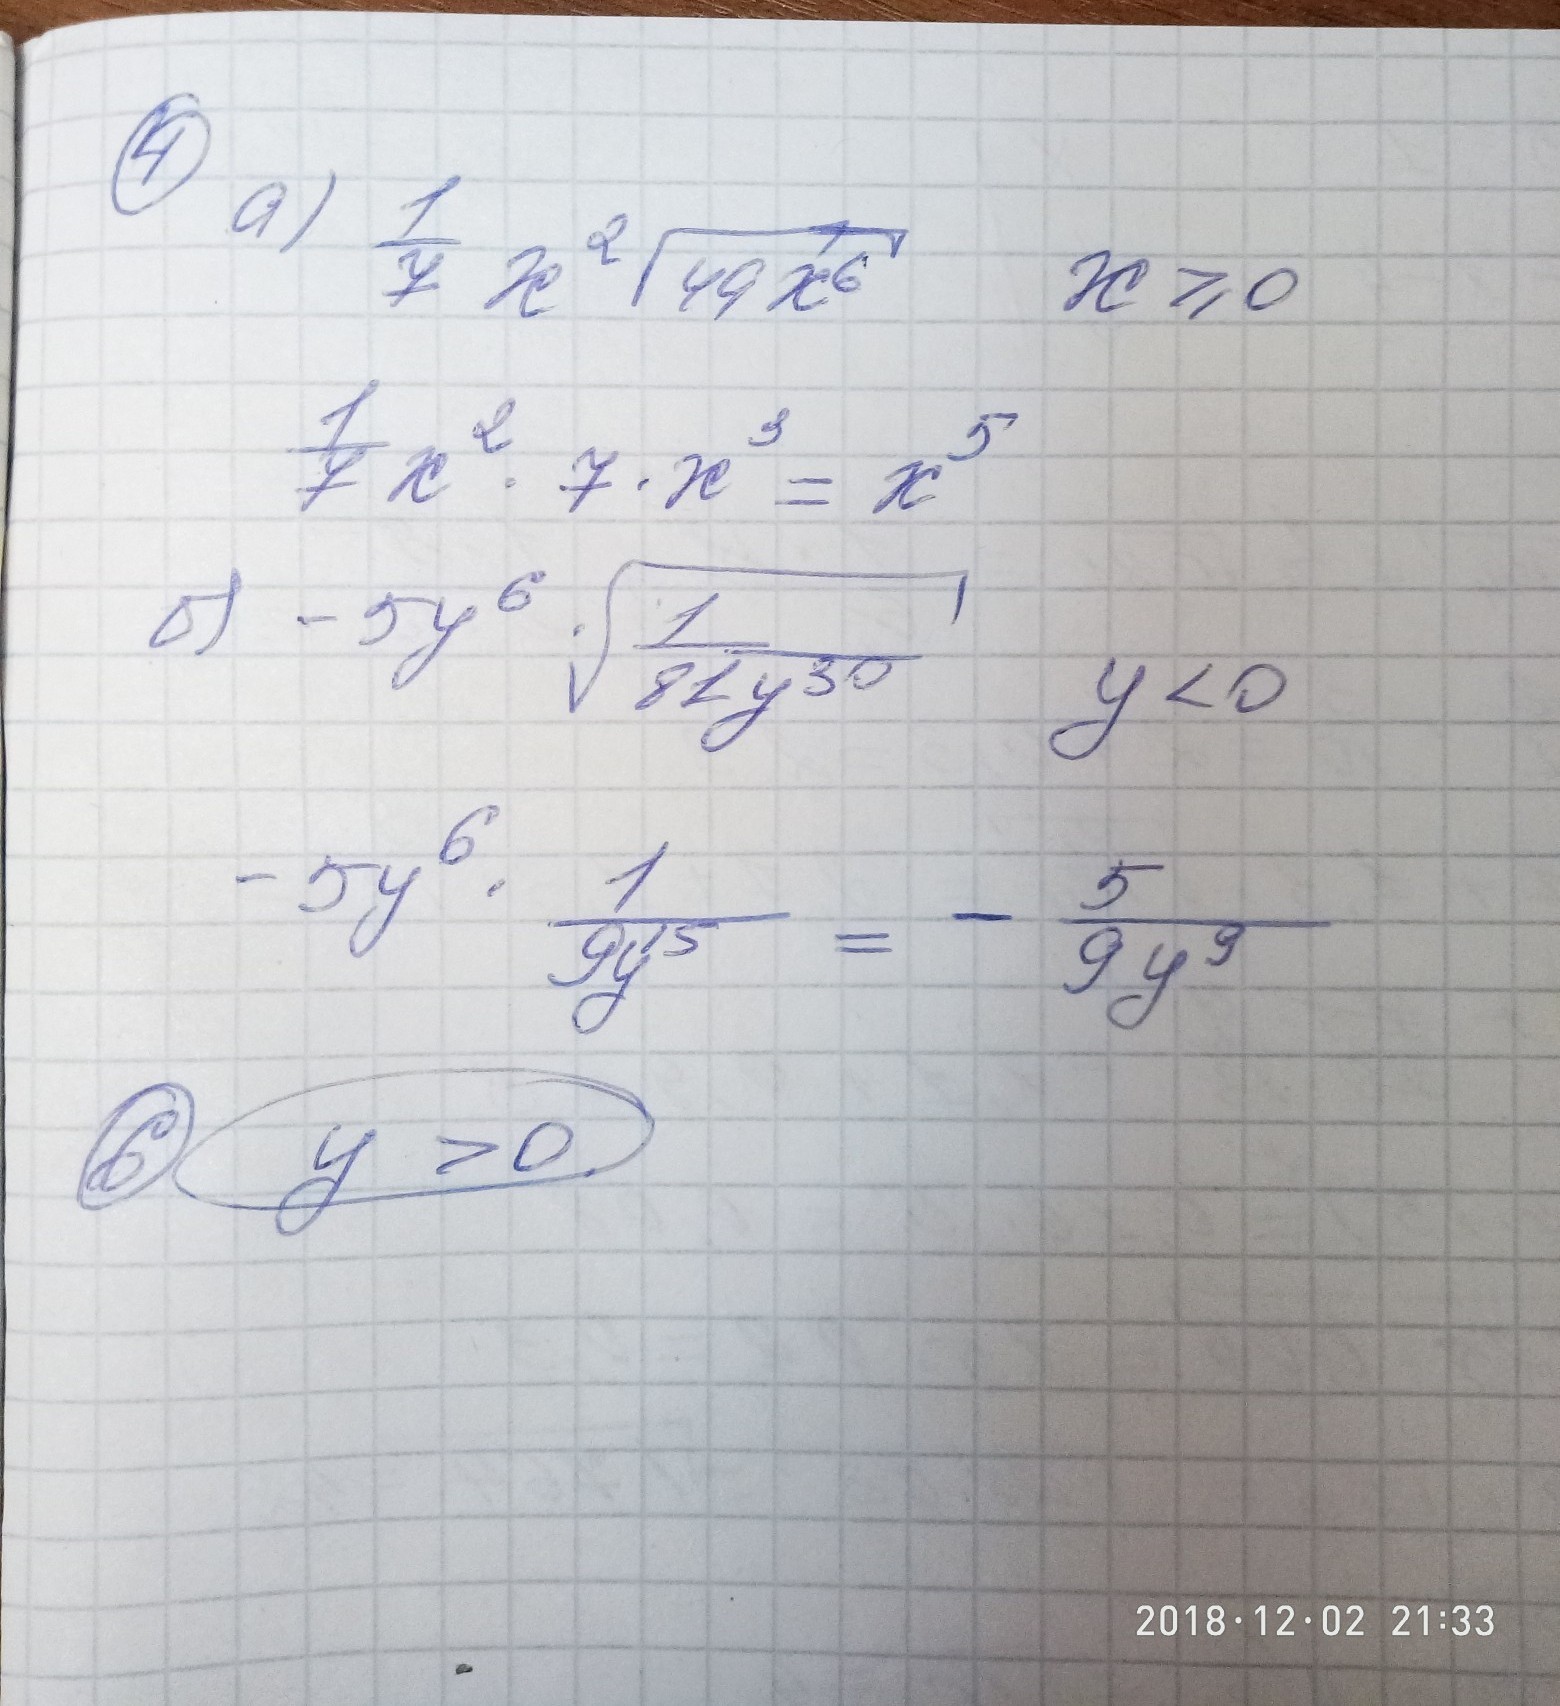 ④
а) 1/7 x²√(49x⁶) x ⩾ 0
1/7 x² · 7 · x³ = x⁵
б) - 5y⁶ · √(1/(81y³⁰)) y < 0
- 5y⁶ · 1/(9y¹⁵) = - 5/(9y⁹)
⑥ y > 0
2018·12·02 21:33